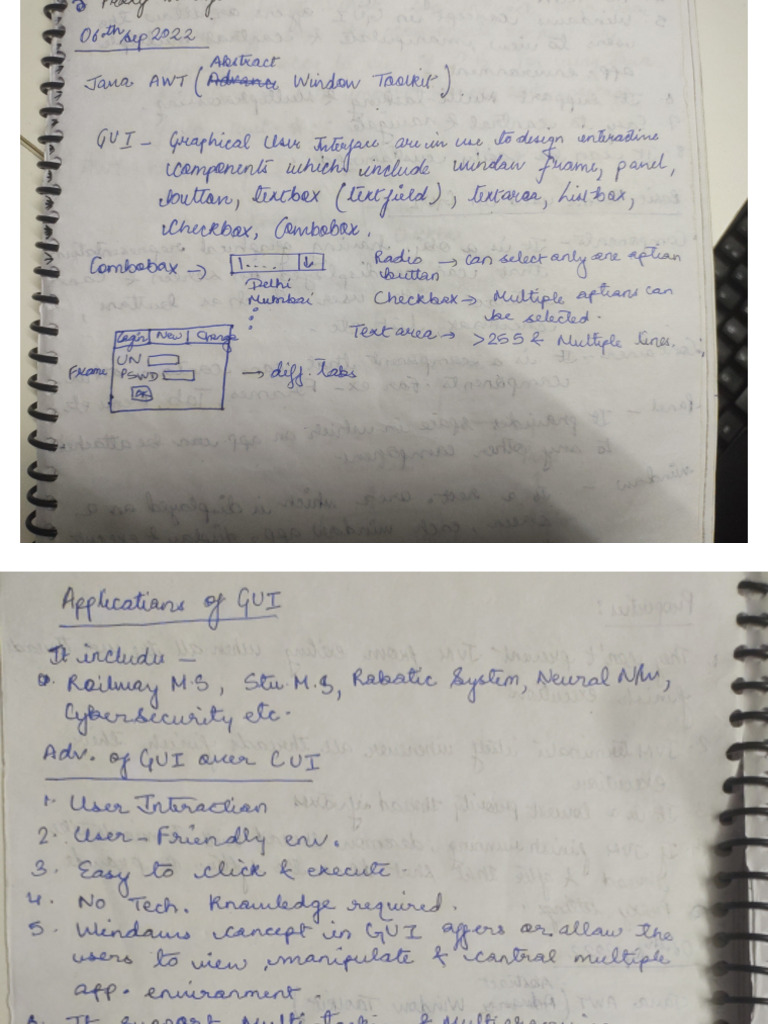 06th Sep 2022
Abstract
Java AWT (Advance Window Toolkit).
GUI - Graphical User Interface are in use to design interactive
components which include window frame, panel,
button, textbox (textfield), textarea, listbox,
Checkbox, Combobox.
Combobox → 1.... ↓
Delhi
Mumbai
Radio button → can select only one option
Checkbox → Multiple options can
be selected.
Textarea → >255 & Multiple lines.
Login New Change
UN
Frame PSWD → diff. tabs
OK
Applications of GUI
It include -
Railway M.S, Stu M.S, Robotic System, Neural N/w,
Cybersecurity etc.
Adv. of GUI over CUI
1. User Interaction
2. User-Friendly env.
3. Easy to click & execute
4. No Tech. Knowledge required.
5. Windows concept in GUI offers or allow the
users to view, manipulate & control multiple
app. environment.